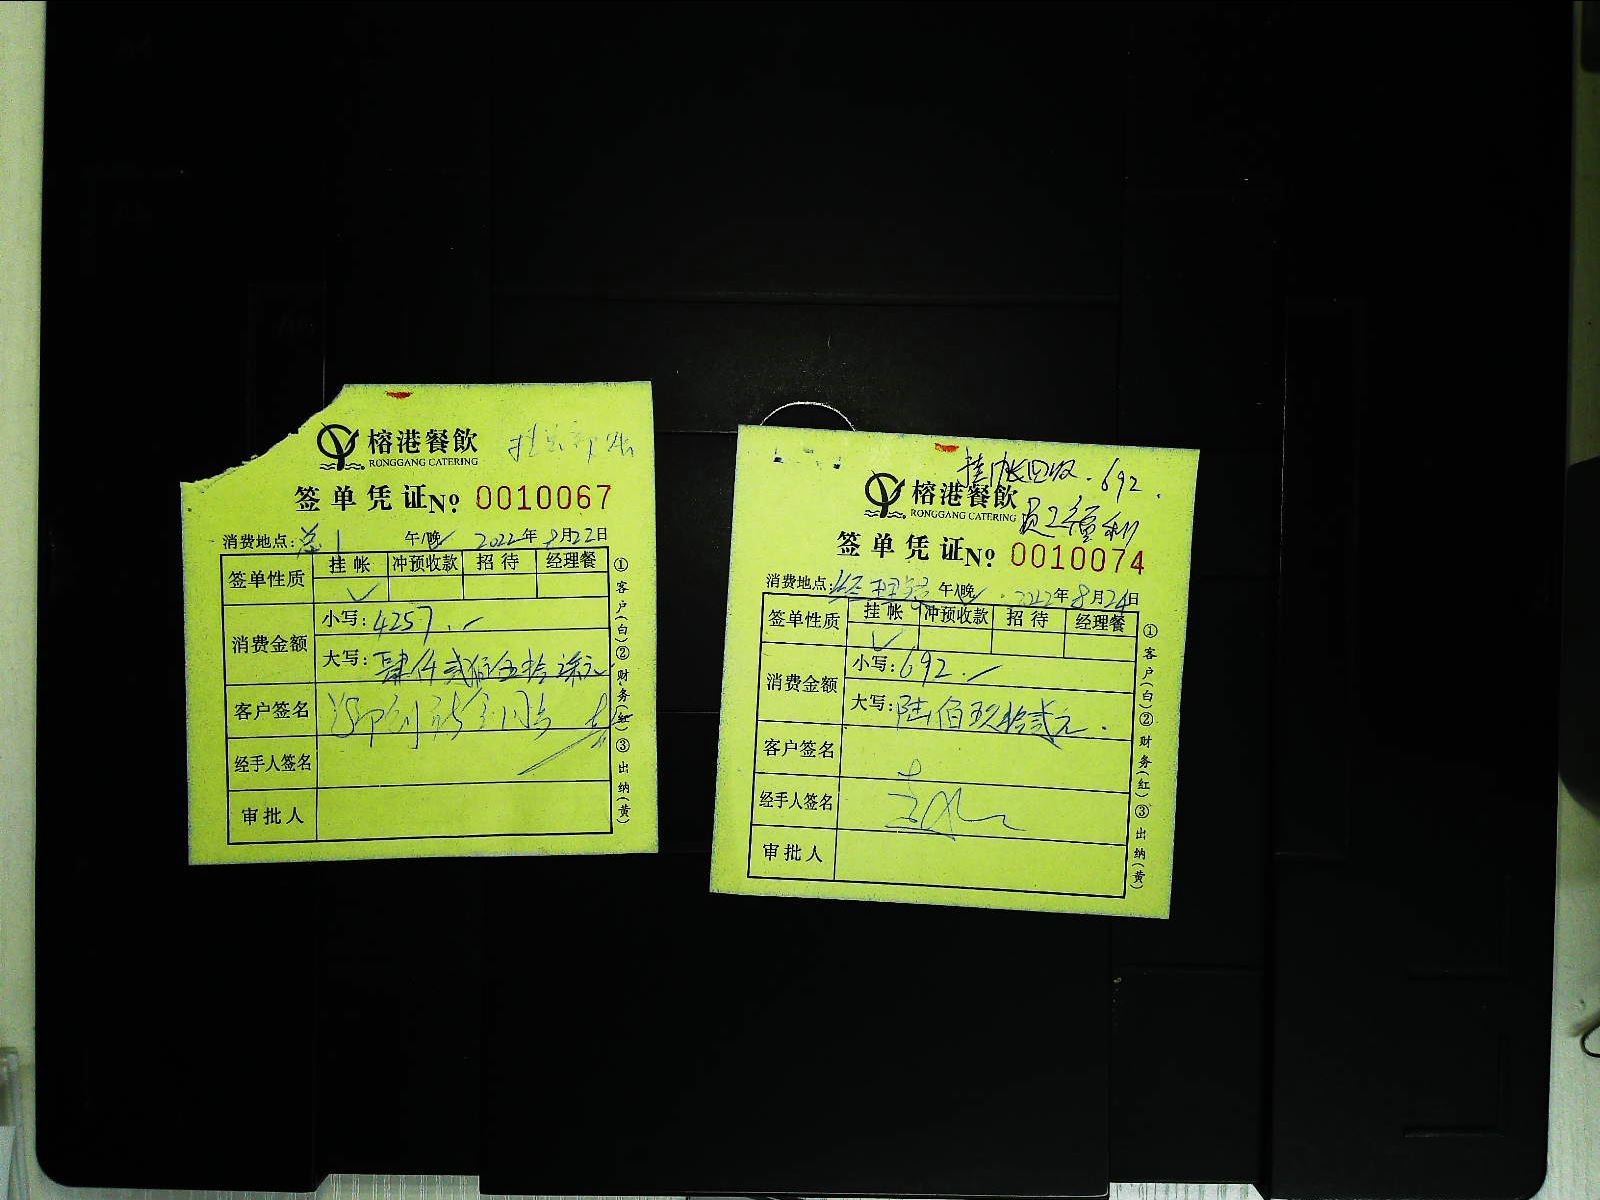 榕港餐飲
RONGGANG CATERING
签单凭证 No 0010067
消费地点: 总1 午/晚 2022年8月22日
签单性质 挂帐 冲预收款 招待 经理餐
✓
消费金额
小写: 4257.-
大写: 肆仟贰佰伍拾柒元
客户签名
经手人签名
审批人
①客户(白)②财务(红)③出纳(黄)
挂帐回收.692.
榕港餐飲
RONGGANG CATERING
员工福利
签单凭证 No 0010074
消费地点: 经理 午/晚 2022年8月24日
签单性质 挂帐 冲预收款 招待 经理餐
✓
消费金额
小写: 692.-
大写: 陆佰玖拾贰元.
客户签名
经手人签名
审批人
①客户(白)②财务(红)③出纳(黄)